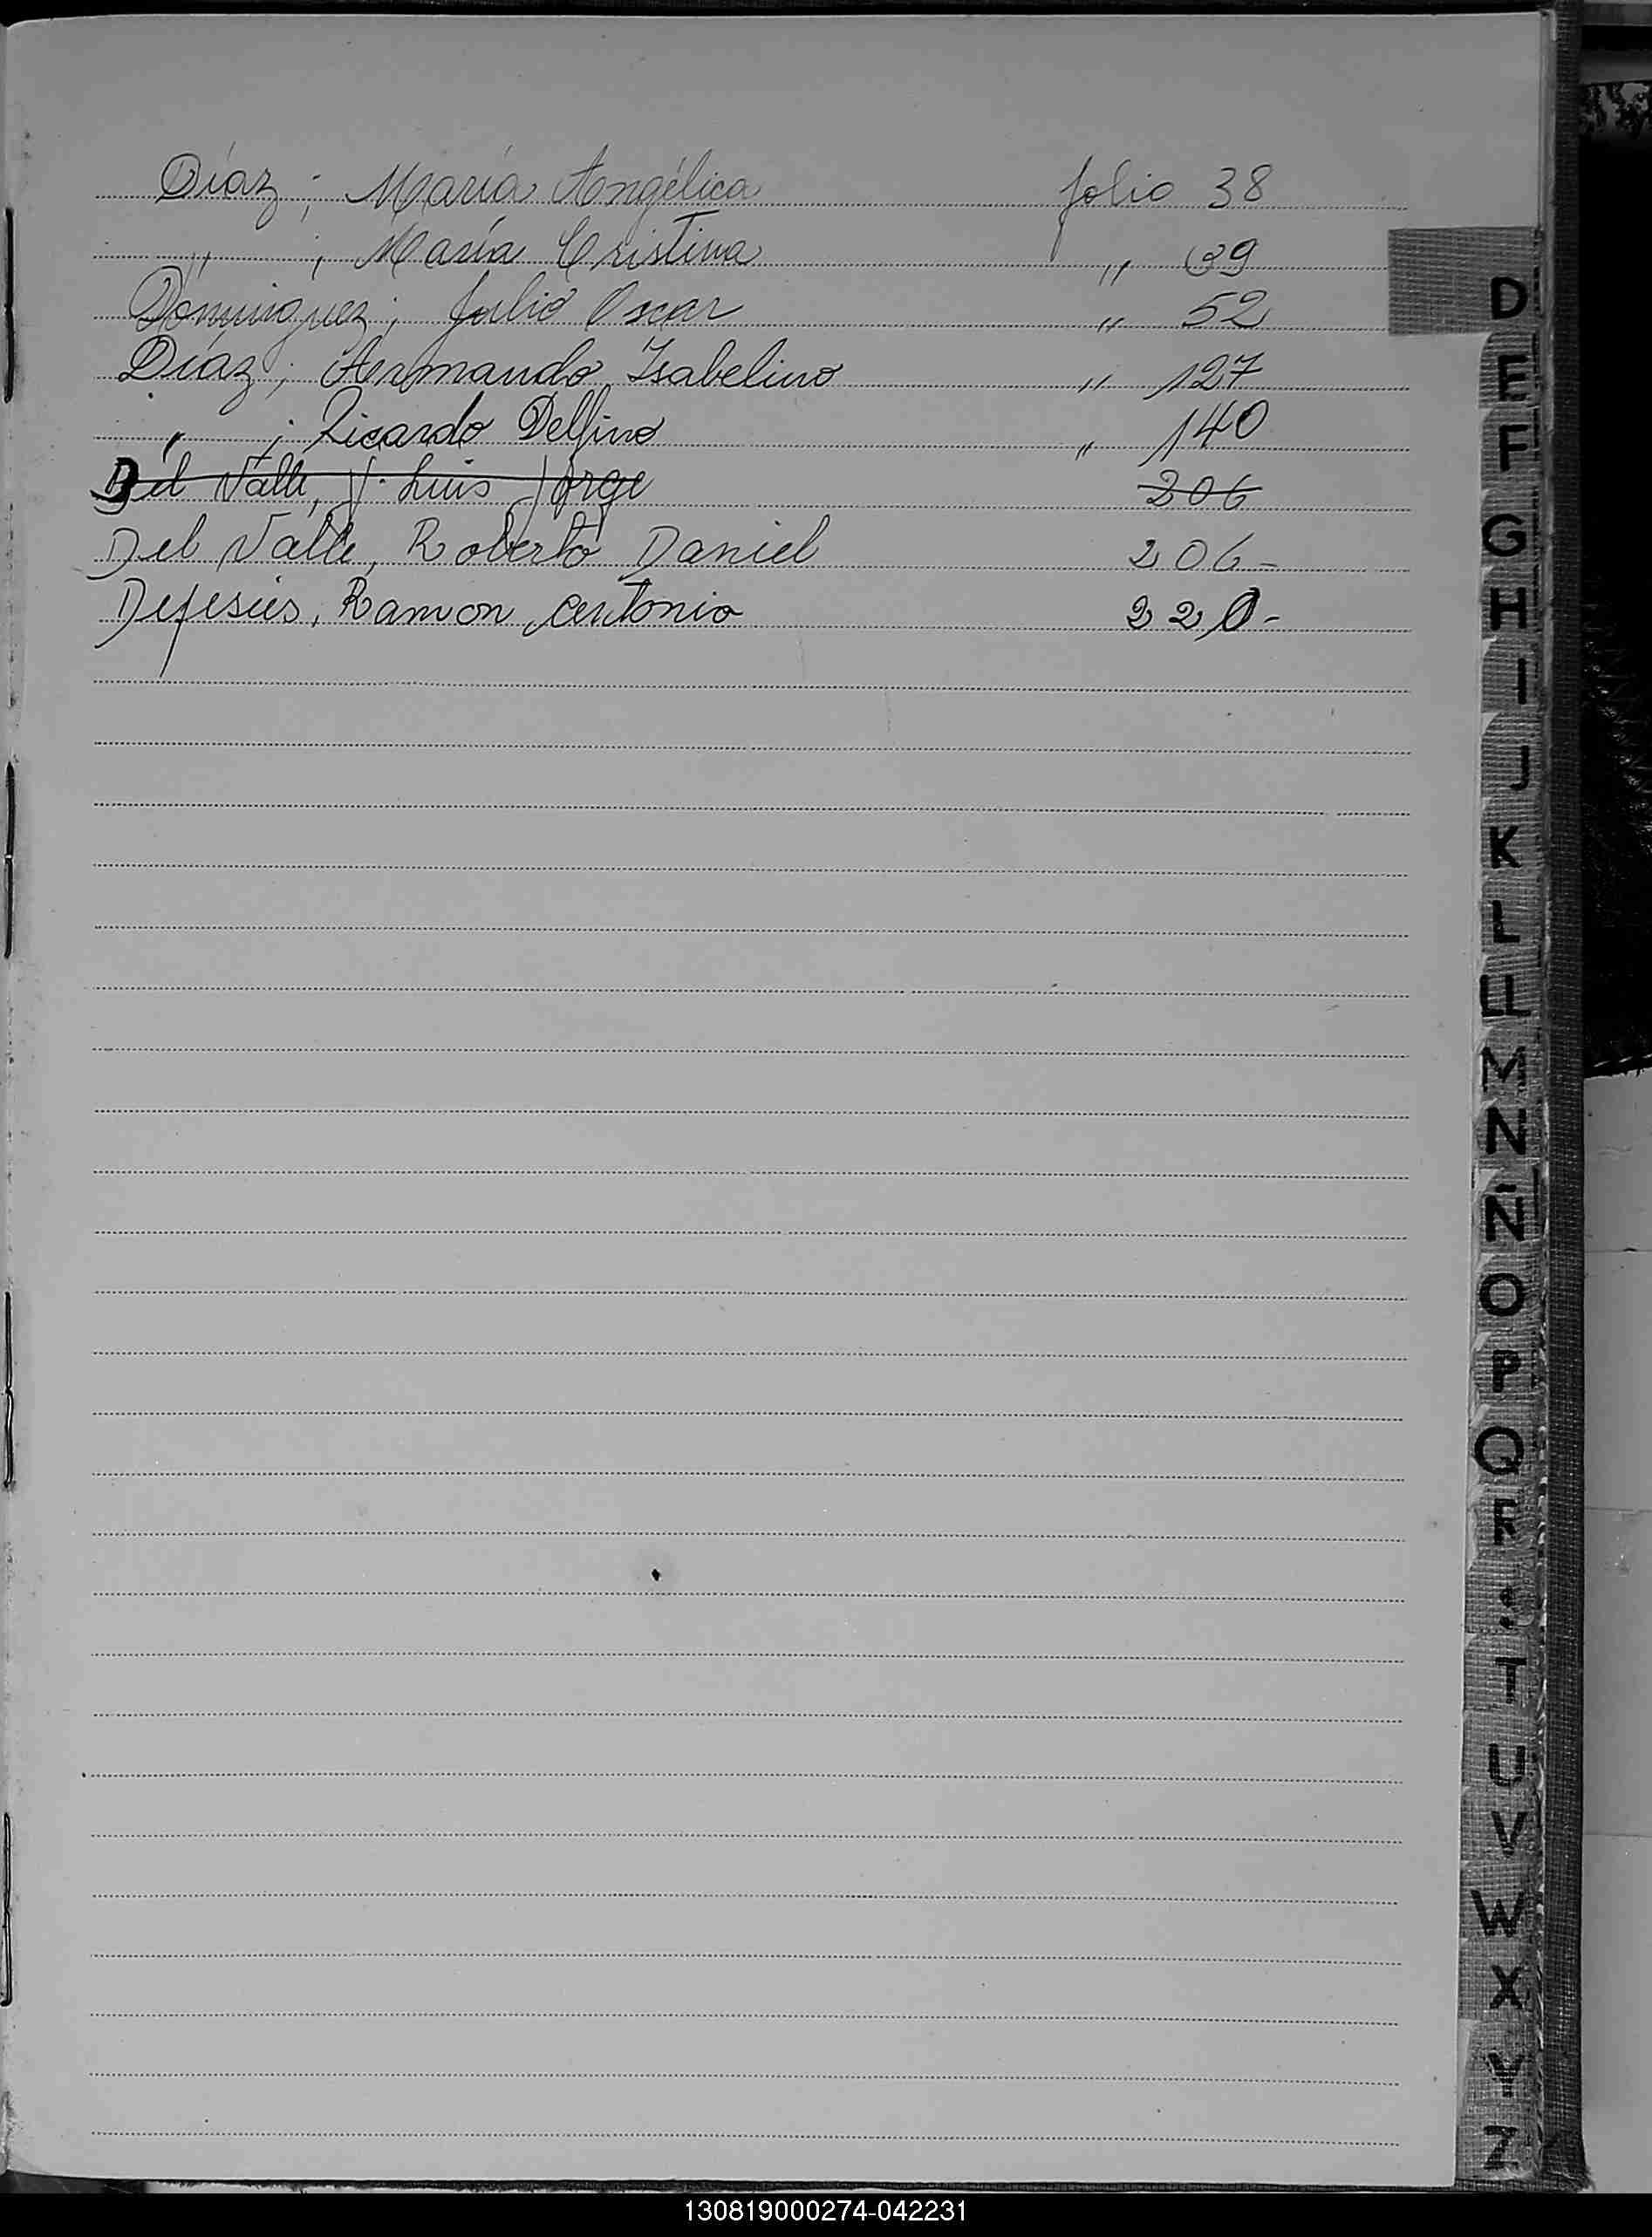 Díaz ; María Angélica folio 38
" ; María Cristina " 39
Dominguez ; Julio Oscar " 52
Díaz ; Armando Isabelino " 127
" ; Ricardo Delfino " 140
Del Valle, J. Luis Jorge 206
Del Valle, Roberto Daniel 206-
Dejesús, Ramon Antonio 220-
D
E
F
G
H
I
J
K
L
LL
M
N
Ñ
O
P
Q
R
S
T
U
V
W
X
Y
Z
130819000274-042231